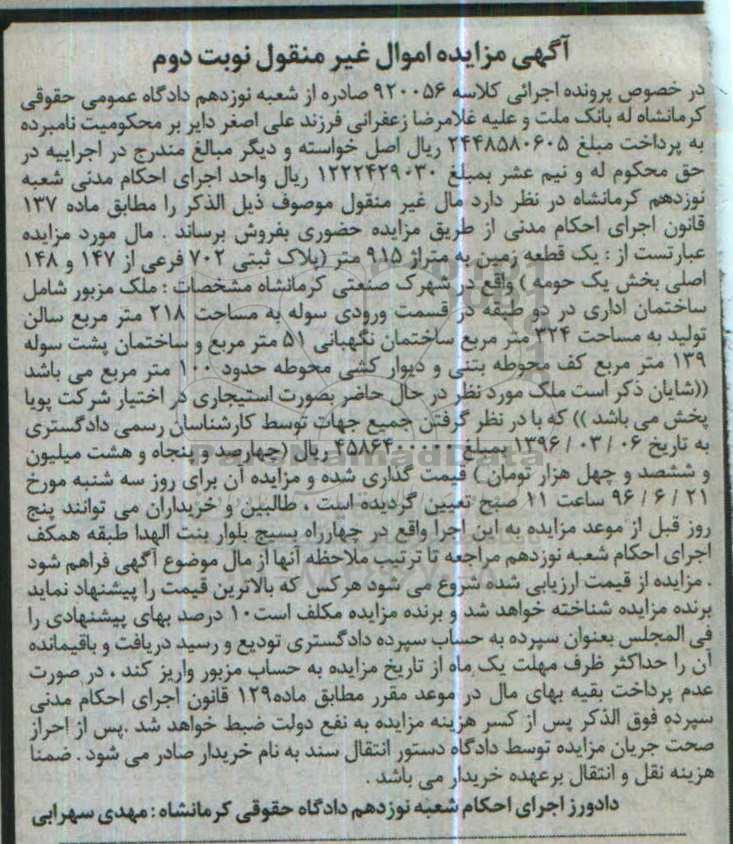 آگهی مزایده اموال غیر منقول نوبت دوم
در خصوص پرونده اجرائی کلاسه ۹۲۰۰۵۶ صادره از شعبه نوزدهم دادگاه عمومی حقوقی
کرمانشاه له بانک ملت و علیه غلامرضا زعفرانی فرزند علی اصغر دایر بر محکومیت نامبرده
به پرداخت مبلغ ۲۴۴۸۵۸۰۶۰۵ ریال اصل خواسته و دیگر مبالغ مندرج در اجراییه در
حق محکوم له و نیم عشر بمبلغ ۱۲۲۲۴۲۹۰۳۰ ریال واحد اجرای احکام مدنی شعبه
نوزدهم کرمانشاه در نظر دارد مال غیر منقول موصوف ذیل الذکر را مطابق ماده ۱۳۷
قانون اجرای احکام مدنی از طریق مزایده حضوری بفروش برساند . مال مورد مزایده
عبارتست از : یک قطعه زمین به متراژ ۹۱۵ متر (پلاک ثبتی ۷۰۲ فرعی از ۱۴۷ و ۱۴۸
اصلی بخش یک حومه ) واقع در شهرک صنعتی کرمانشاه مشخصات : ملک مزبور شامل
ساختمان اداری در دو طبقه در قسمت ورودی سوله به مساحت ۲۱۸ متر مربع سالن
تولید به مساحت ۳۲۴ متر مربع ساختمان نگهبانی ۵۱ متر مربع و ساختمان پشت سوله
۱۳۹ متر مربع کف محوطه بتنی و دیوار کشی محوطه حدود ۱۰۰ متر مربع می باشد
((شایان ذکر است ملک مورد نظر در حال حاضر بصورت استیجاری در اختیار شرکت پویا
پخش می باشد )) که با در نظر گرفتن جمیع جهات توسط کارشناسان رسمی دادگستری
به تاریخ ۰۶ / ۰۳ / ۱۳۹۶ مبلغ ۴۵۸۶۴۰۰۰۰۰ ریال (چهارصد و پنجاه و هشت میلیون
و ششصد و چهل هزار تومان ) قیمت گذاری شده و مزایده آن برای روز سه شنبه مورخ
۲۱ / ۶ / ۹۶ ساعت ۱۱ صبح تعیین گردیده است . طالبین و خریداران می توانند پنج
روز قبل از موعد مزایده به این اجرا واقع در چهارراه بسیج بلوار بنت الهدا طبقه همکف
اجرای احکام شعبه نوزدهم مراجعه تا ترتیب ملاحظه آنها از مال موضوع آگهی فراهم شود
. مزایده از قیمت ارزیابی شده شروع می شود هرکس که بالاترین قیمت را پیشنهاد نماید
برنده مزایده شناخته خواهد شد و برنده مزایده مکلف است ۱۰ درصد بهای پیشنهادی را
فی المجلس بعنوان سپرده به حساب سپرده دادگستری تودیع و رسید دریافت و باقیمانده
آن را حداکثر ظرف مهلت یک ماه از تاریخ مزایده به حساب مزبور واریز کند . در صورت
عدم پرداخت بقیه بهای مال در موعد مقرر مطابق ماده ۱۲۹ قانون اجرای احکام مدنی
سپرده فوق الذکر پس از کسر هزینه مزایده به نفع دولت ضبط خواهد شد .پس از احراز
صحت جریان مزایده توسط دادگاه دستور انتقال سند به نام خریدار صادر می شود . ضمنا
هزینه نقل و انتقال برعهده خریدار می باشد .
دادورز اجرای احکام شعبه نوزدهم دادگاه حقوقی کرمانشاه : مهدی سهرابی